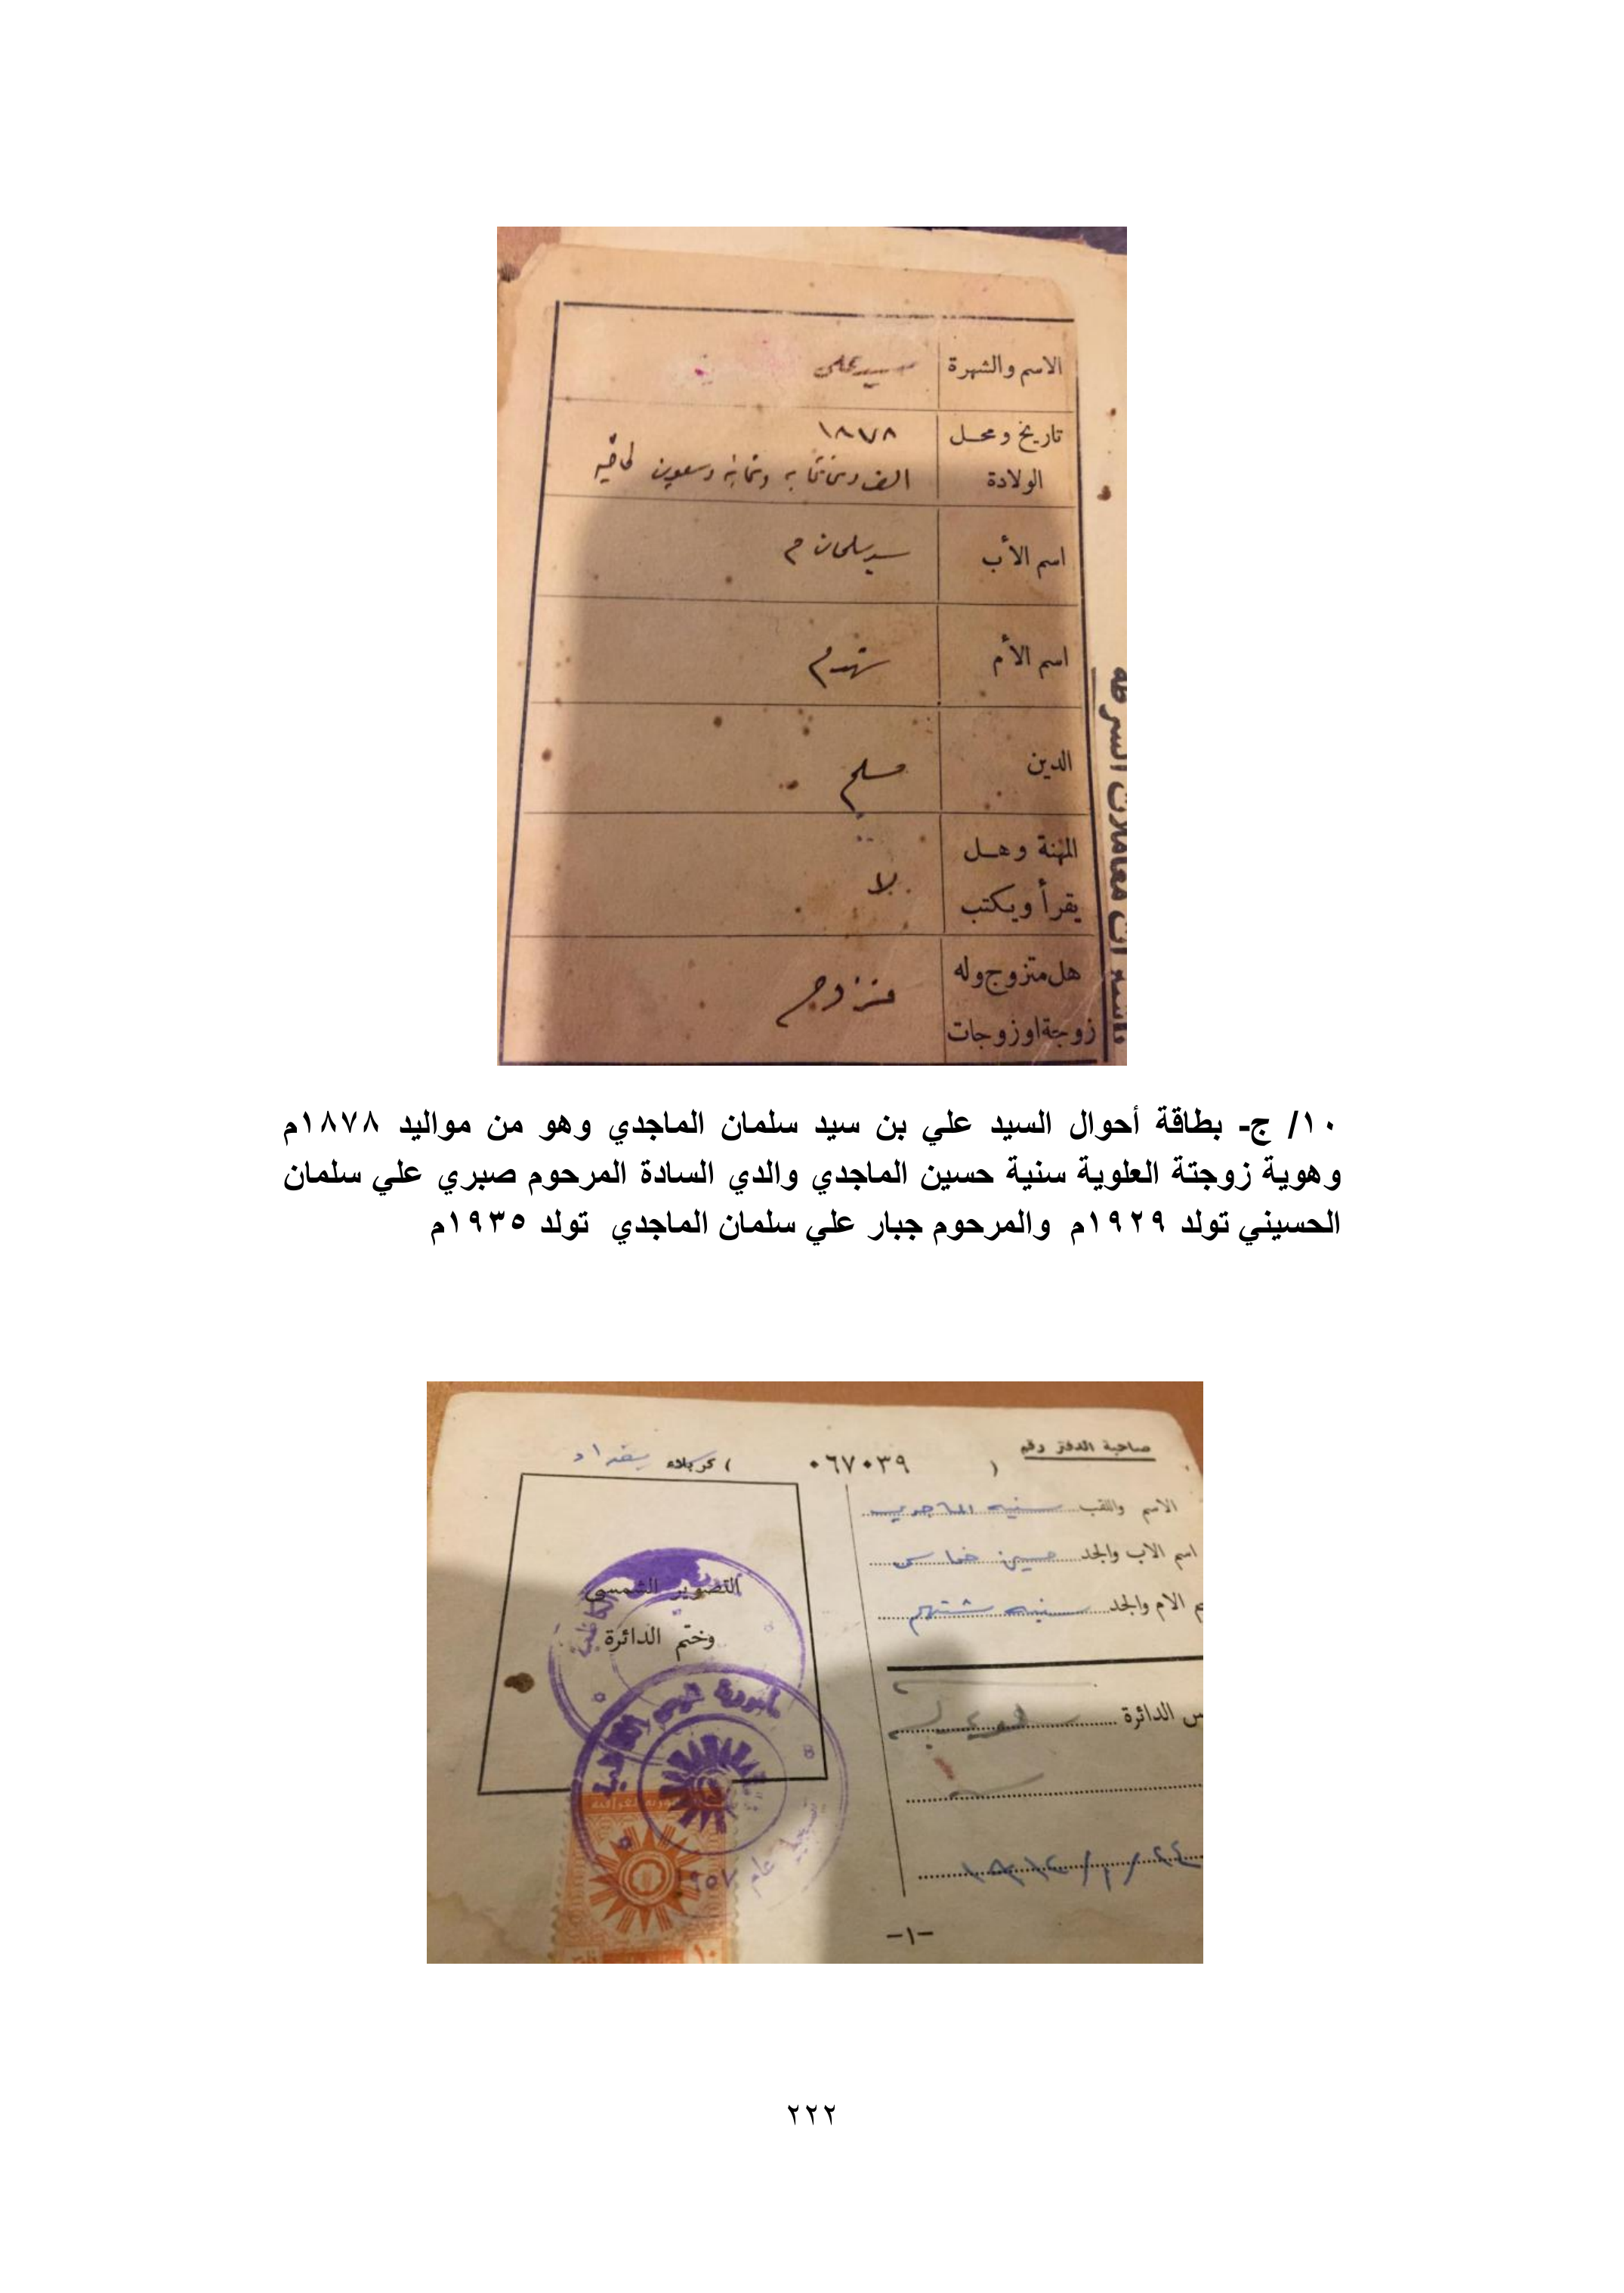 الاسم والشهرة سيد علي
تاريخ ومحل ١٨٧٨
الولادة الف وثمانمائة وثمانية وسبعون
اسم الأب سيد سلمان م
اسم الأم
الدين مسلم
المهنة وهل
يقرأ ويكتب لا
هل متزوج وله متزوج
زوجة او زوجات
معاملات
١٠/ ج- بطاقة أحوال السيد علي بن سيد سلمان الماجدي وهو من مواليد ١٨٧٨م
وهوية زوجتة العلوية سنية حسين الماجدي والدي السادة المرحوم صبري علي سلمان
الحسيني تولد ١٩٢٩م والمرحوم جبار علي سلمان الماجدي تولد ١٩٣٥م
صاحبة الدفتر رقم
( ٠٦٧٠٣٩ ) كربلاء بغداد
الاسم واللقب سنيه الماجدي
اسم الاب والجد حسين خماس
م الام والجد سنيه
س الدائرة
التصوير الشمسي
وختم الدائرة
تسجيل عام ١٩٥٧
١٠
-١-
٢٢٢